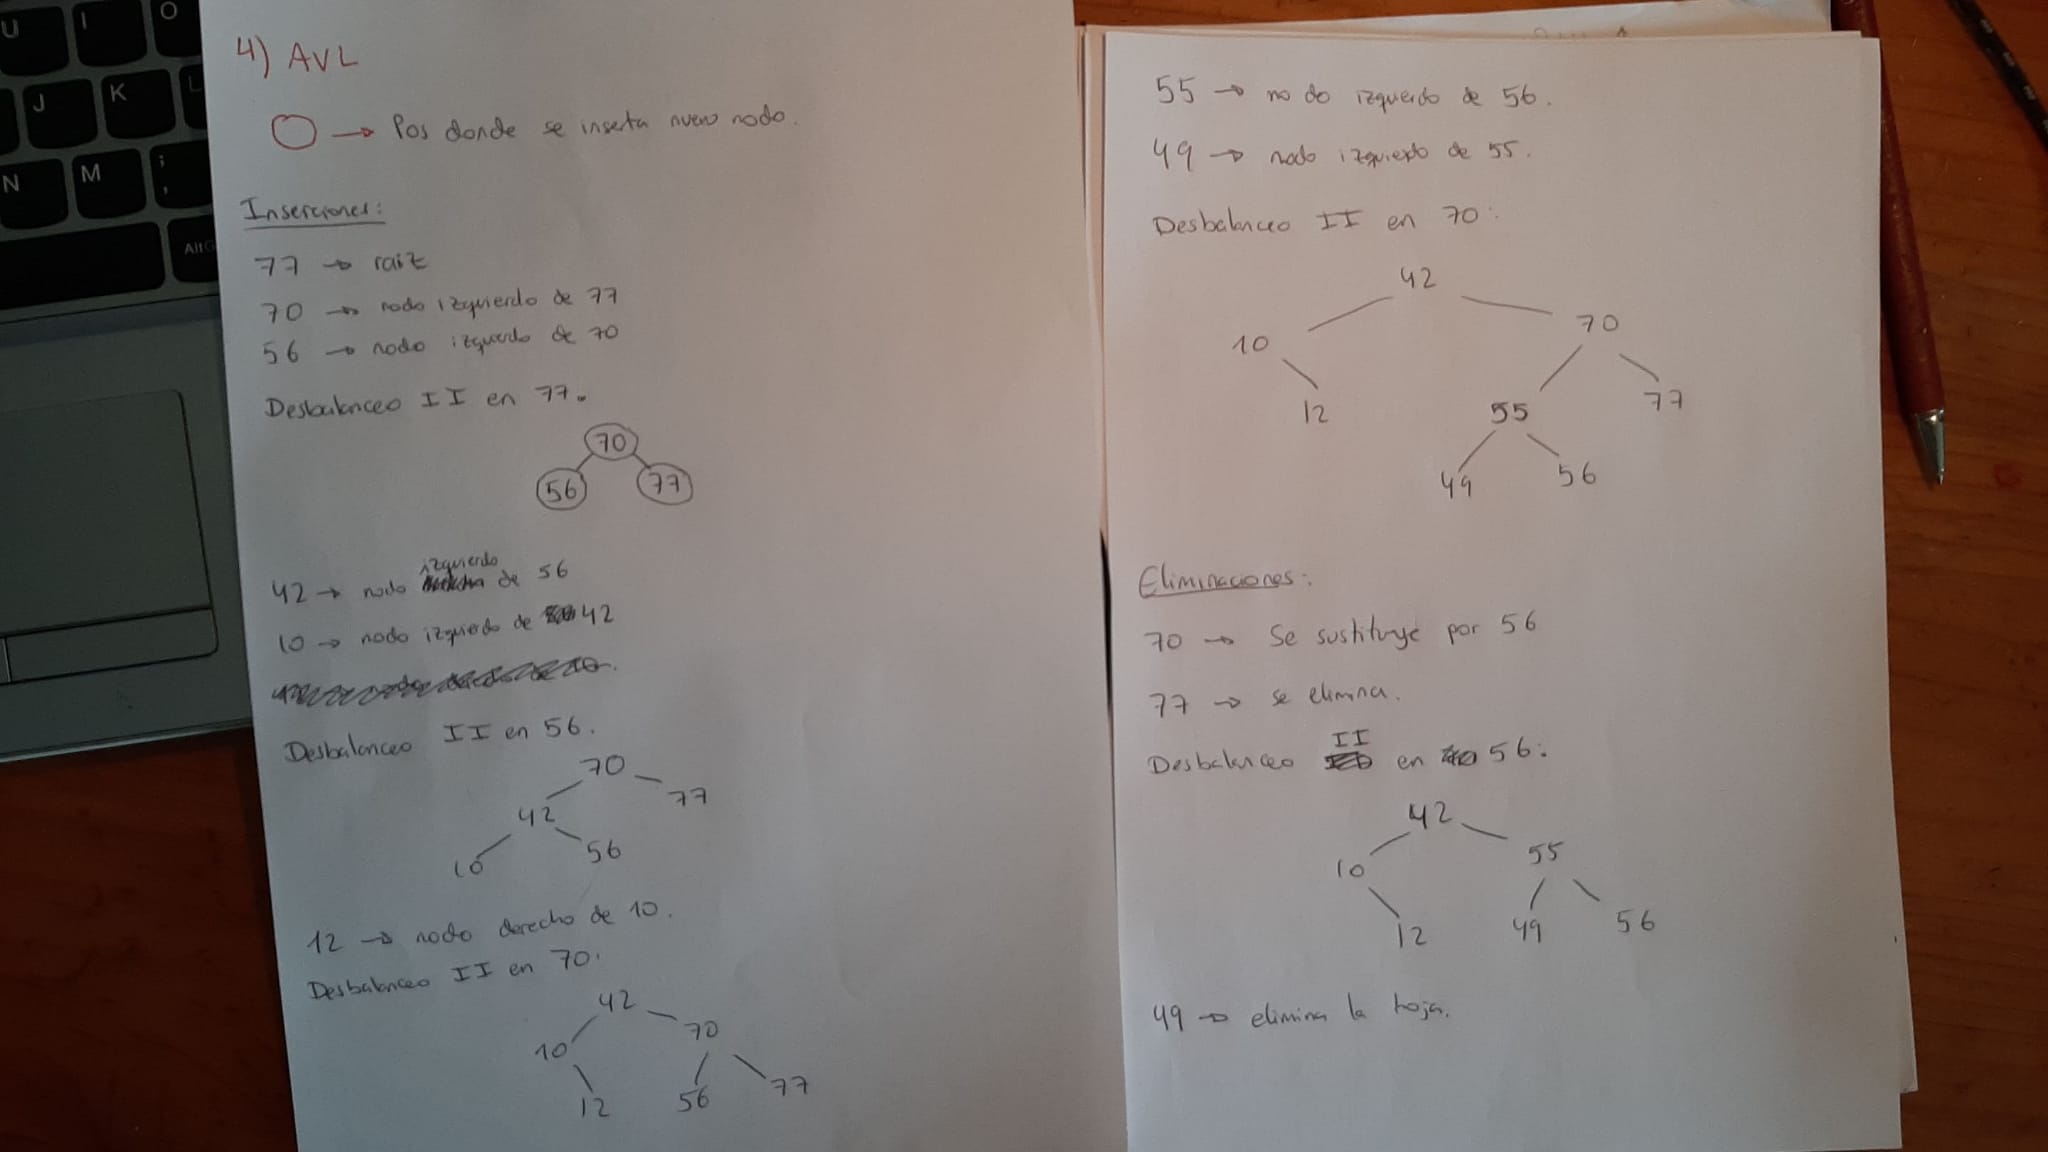 U
I
O
J
K
L
N
M
;
,
AltG
4) AVL
O → Pos donde se inserta nuevo nodo.
Inserciones:
77 → raiz
70 → nodo izquierdo de 77
56 → nodo izquierdo de 70
Desbalanceo II en 77.
70
56 77
izquierdo
42 → nodo de 56
10 → nodo izquierdo de 42
Desbalanceo II en 56.
70
42 77
10 56
12 → nodo derecho de 10.
Desbalanceo II en 70.
42
10 70
12 56 77
55 → nodo izquierdo de 56.
49 → nodo izquierdo de 55.
Desbalanceo II en 70:
42
10 70
12 55 77
49 56
Eliminaciones:
70 → Se sustituye por 56
77 → se elimina.
II
Desbalanceo en 56:
42
10 55
12 49 56
49 → elimina la hoja.